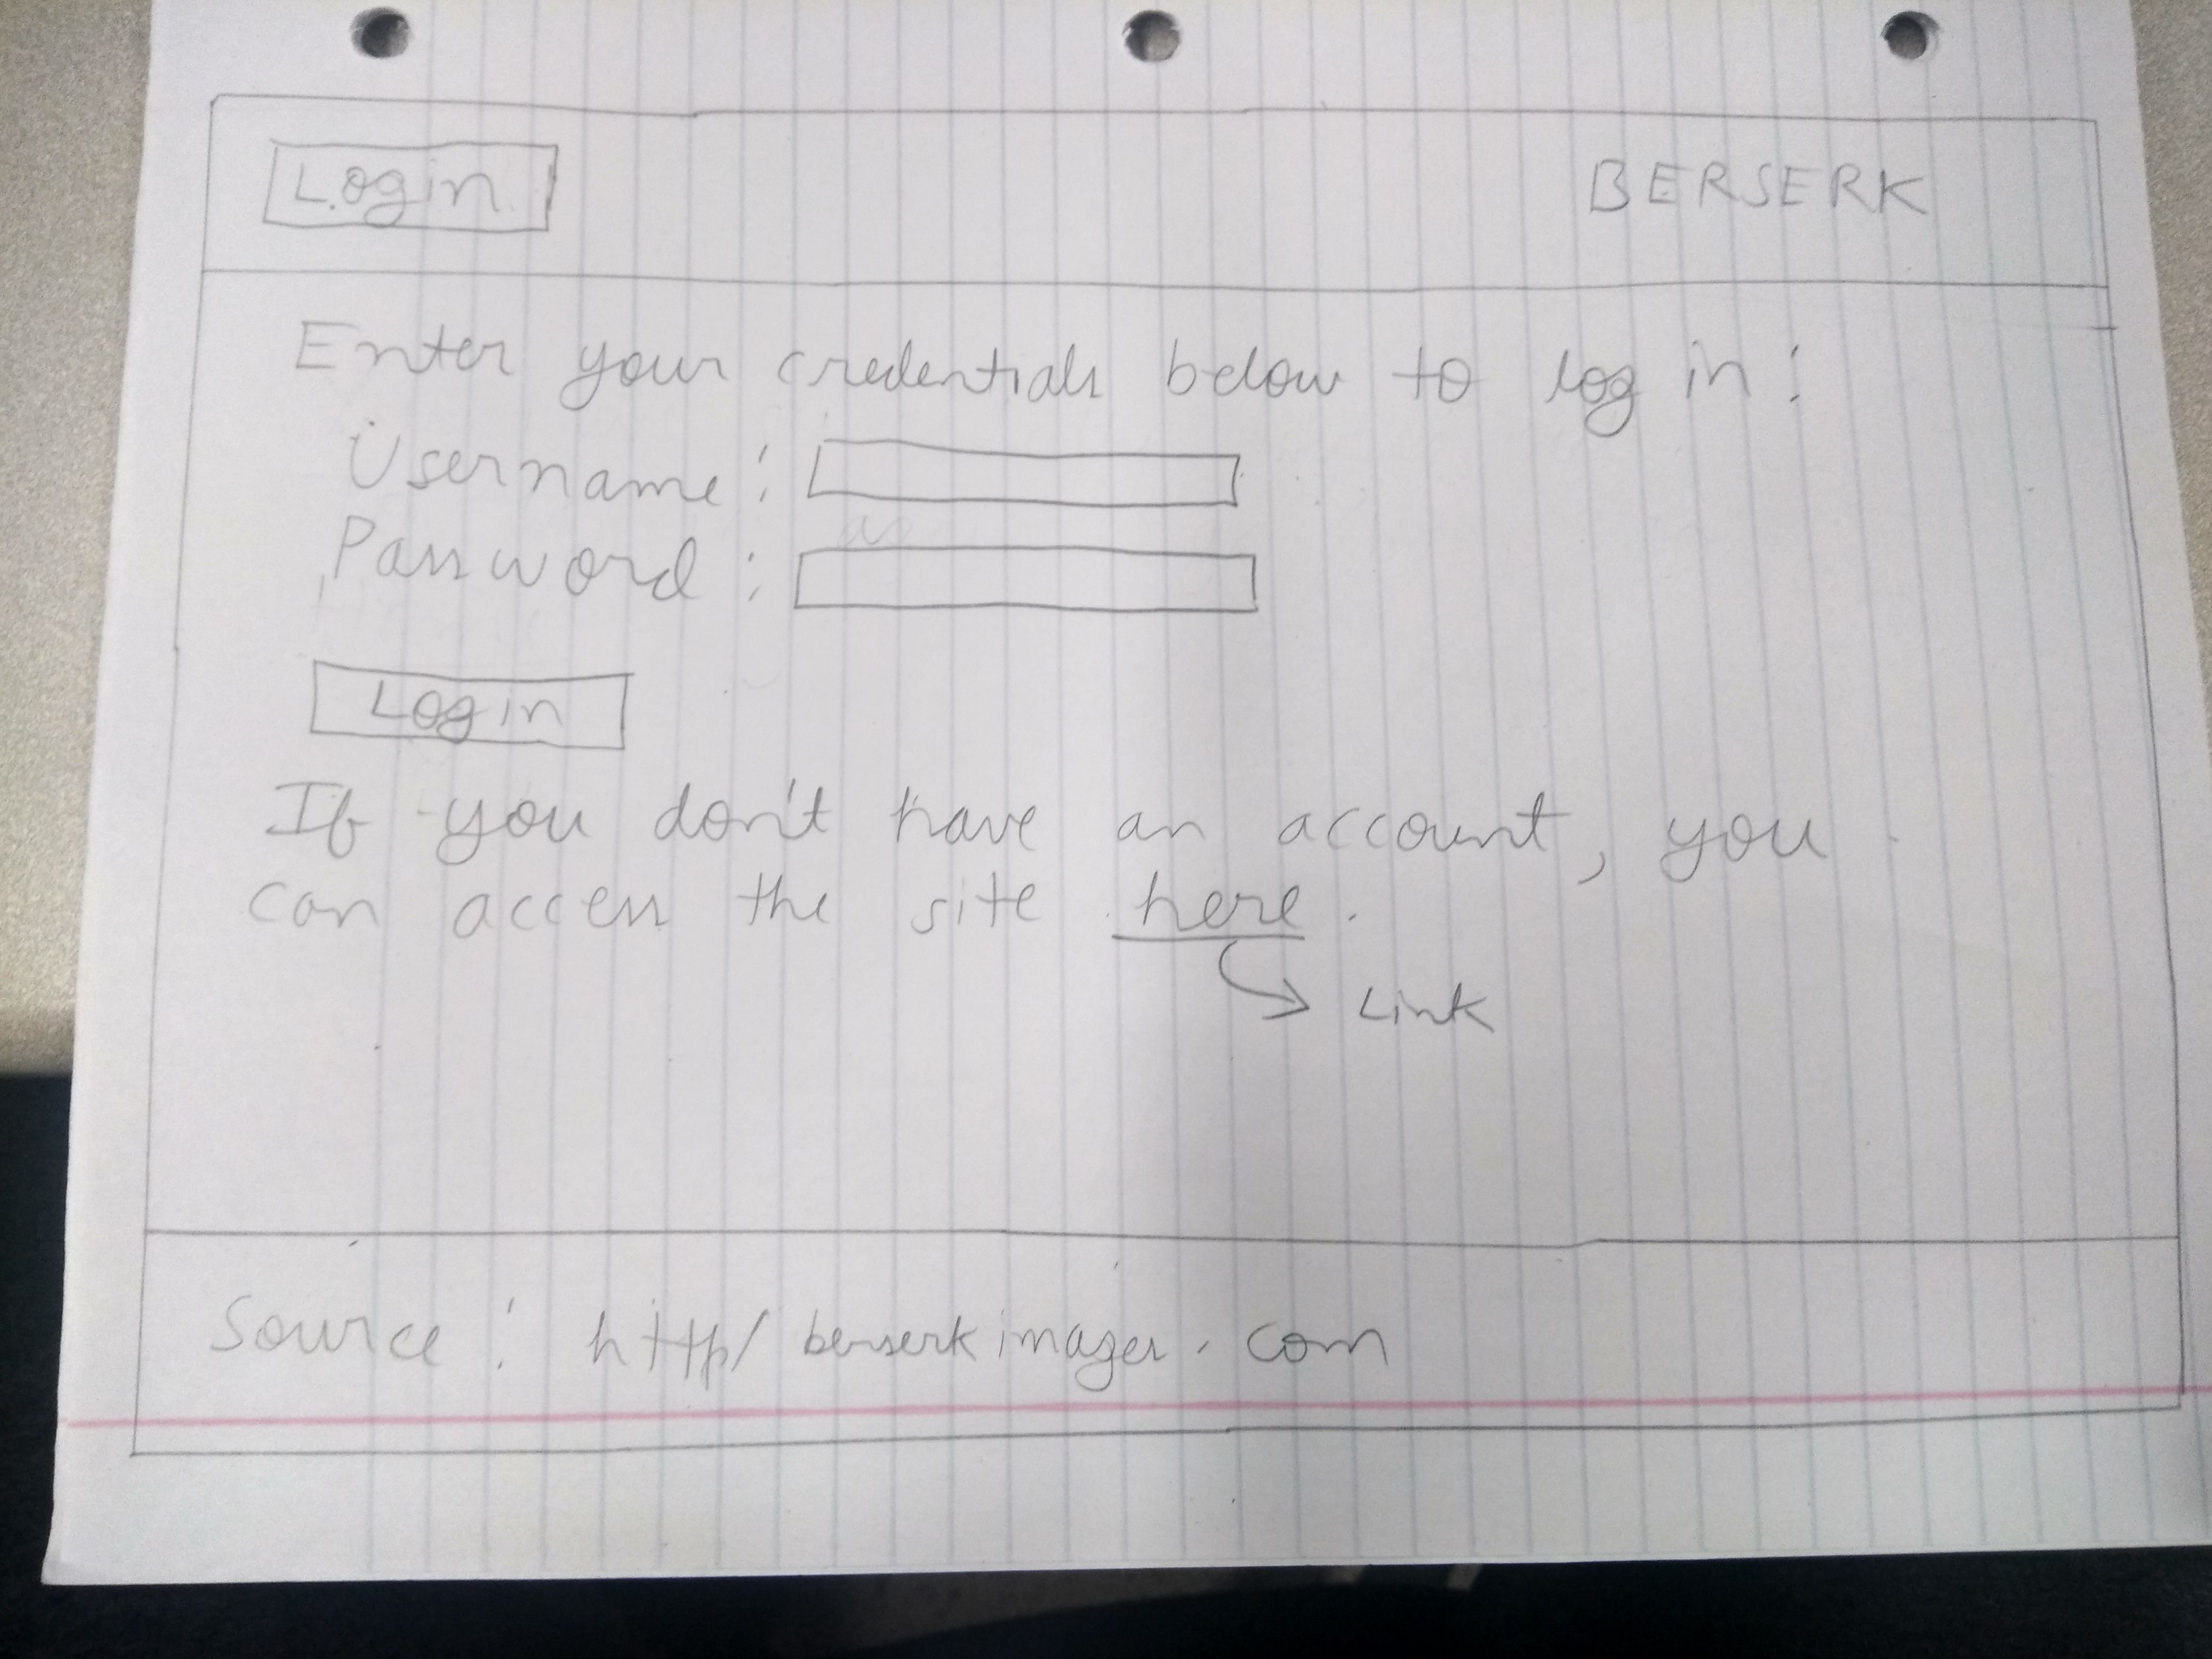 Login BERSERK
Enter your credentials below to log in:
Username:
Password:
Login
If you don't have an account, you
can access the site here.
Link
Source: http/ berserkimages.com